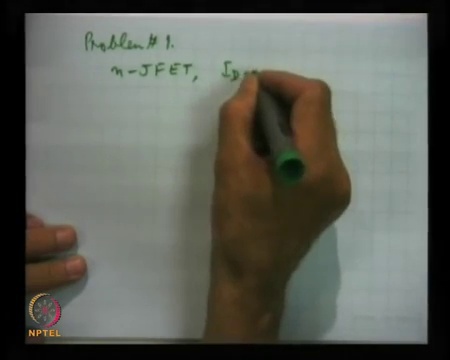 Problem # 1.
n-JFET, I_D
NPTEL